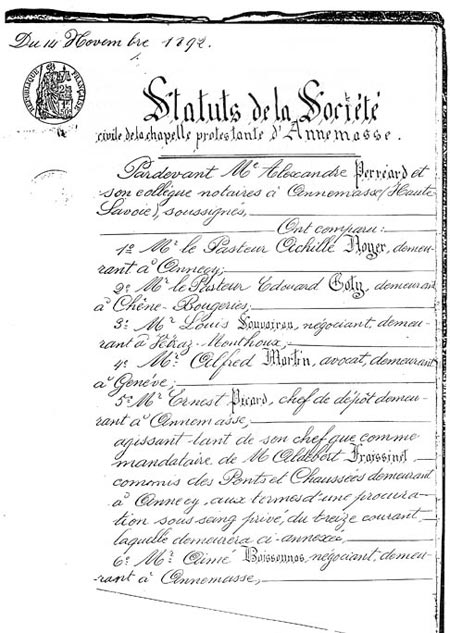 Du 14 Novembre 1892.
RÉPUBLIQUE FRANÇAISE
Statuts de la Société
civile de la chapelle protestante d'Annemasse.
Pardevant Me Alexandre Perréard et
son collègue notaires à Annemasse (Haute
Savoie), soussignés,
Ont comparu:
1o Mr le Pasteur Achille Royer, demeu-
rant à Annecy;
2o Mr le Pasteur Edouard Goty, demeurant
à Chêne-Bougeries;
3o Mr Louis négociant, demeu-
rant à Vétraz-Monthoux;
4o Mr Alfred Martin, avocat, demeurant
à Genève;
5o Mr Ernest Picard, chef de dépôt demeu-
rant à Annemasse,
agissant tant de son chef que comme
mandataire de M Aldebert Fraissinet
commis des Ponts et Chaussées demeurant
à Annecy, aux termes d'une procura-
tion sous seing privé, du treize courant,
laquelle demeurera ci-annexée,
6o Mr Aimé Boissonnas, négociant, demeu-
rant à Annemasse,